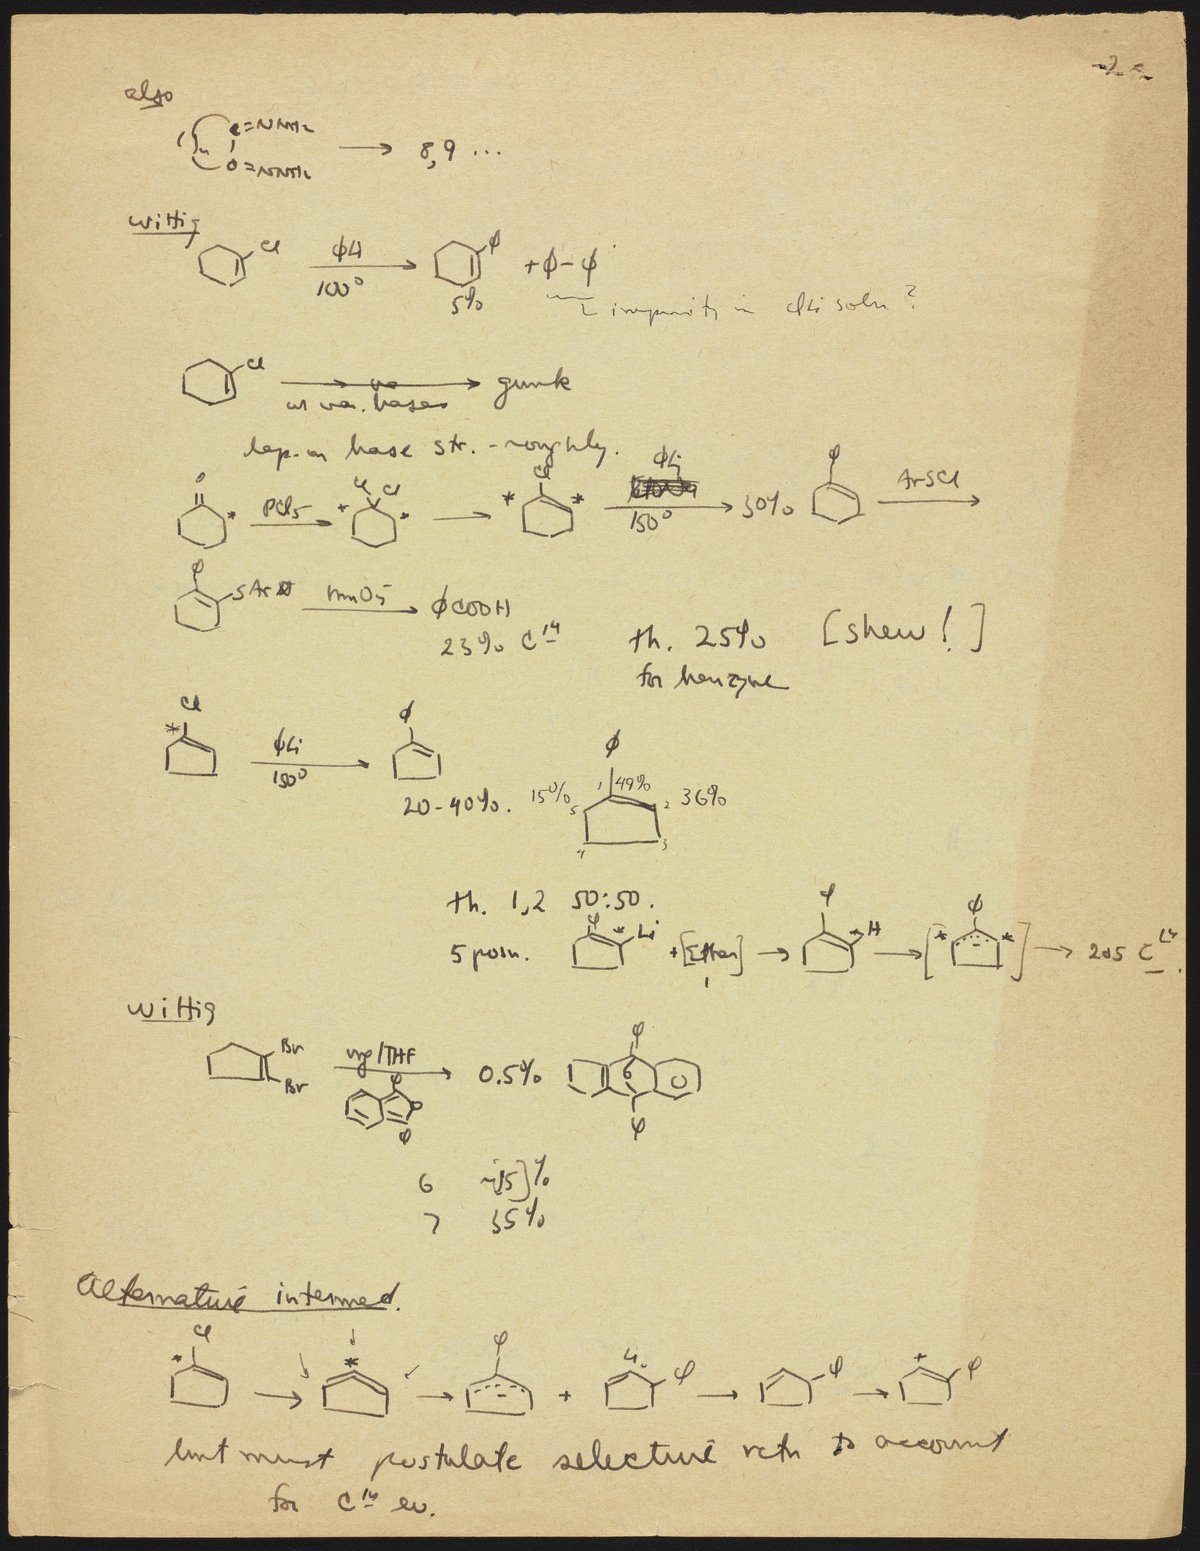 -2-
also
C=NNH2
C=NNH2
( )n → 8,9 ...
Wittig
Cl ΦLi 100° → Φ 5% + Φ-Φ
impurity in ΦLi soln ?
Cl → gunk
w var. bases
dep. on base str. - roughly.
O * PCl5 → * Cl Cl * → * Cl * ΦLi 150° → 30% Φ ArSCl →
Φ SAr MnO4- → ΦCOOH
23% C14 th. 25% [Shew!]
for benzyne
* Cl ΦLi 150° → Φ
20-40%. 15% 5 Φ 1 49% 2 36% 3 4
th. 1,2 50:50.
5 posn. Φ * Li + [Ether] → Φ * H → [* Φ - *] → 2,5 C14.
Wittig
Br Br Mg/THF → 0.5% Φ Φ
Φ O Φ
6 ~[15]%
7 35%
Alternative intermed.
* Cl → * → Φ - + H. Φ → Φ → * Φ
but must postulate selective rctn to account
for C14 ev.